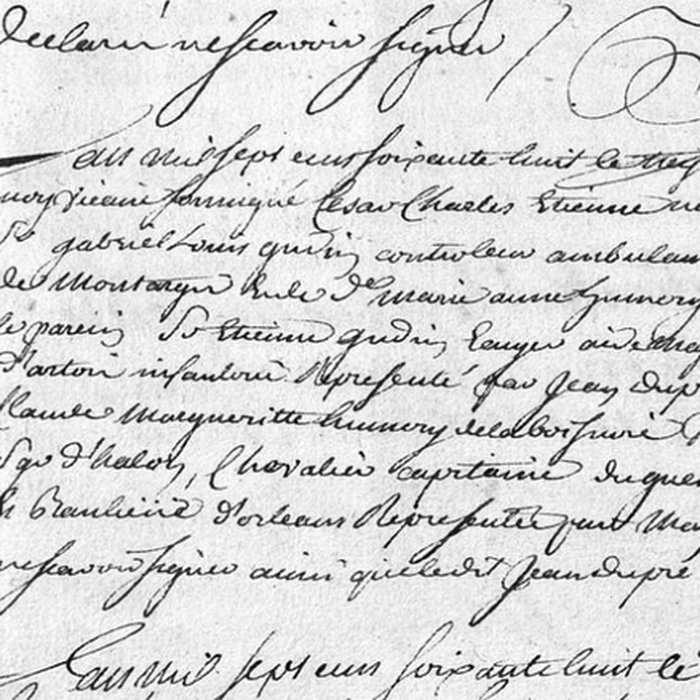 declaré ne scavoir signer
L'an mil sept cens soixante huit le
moy vicaire soussigné Cesar Charles Etienne
Sr gabriel Louis gudin controleur ambulan
de Montargis & de De marie anne humery
le parein Sr Etienne gudin Ecuyer aide Ma
d'artois infanterie Representé par Jean dup
Claude Margueritte humery de la boissiere
Sgr d'halor, Chevalier capitaine du gue
d'orleans Representée par Ma
ne scavoir signer ainsi que ledit Jean dupré
L'an mil sept cens soixante huit le